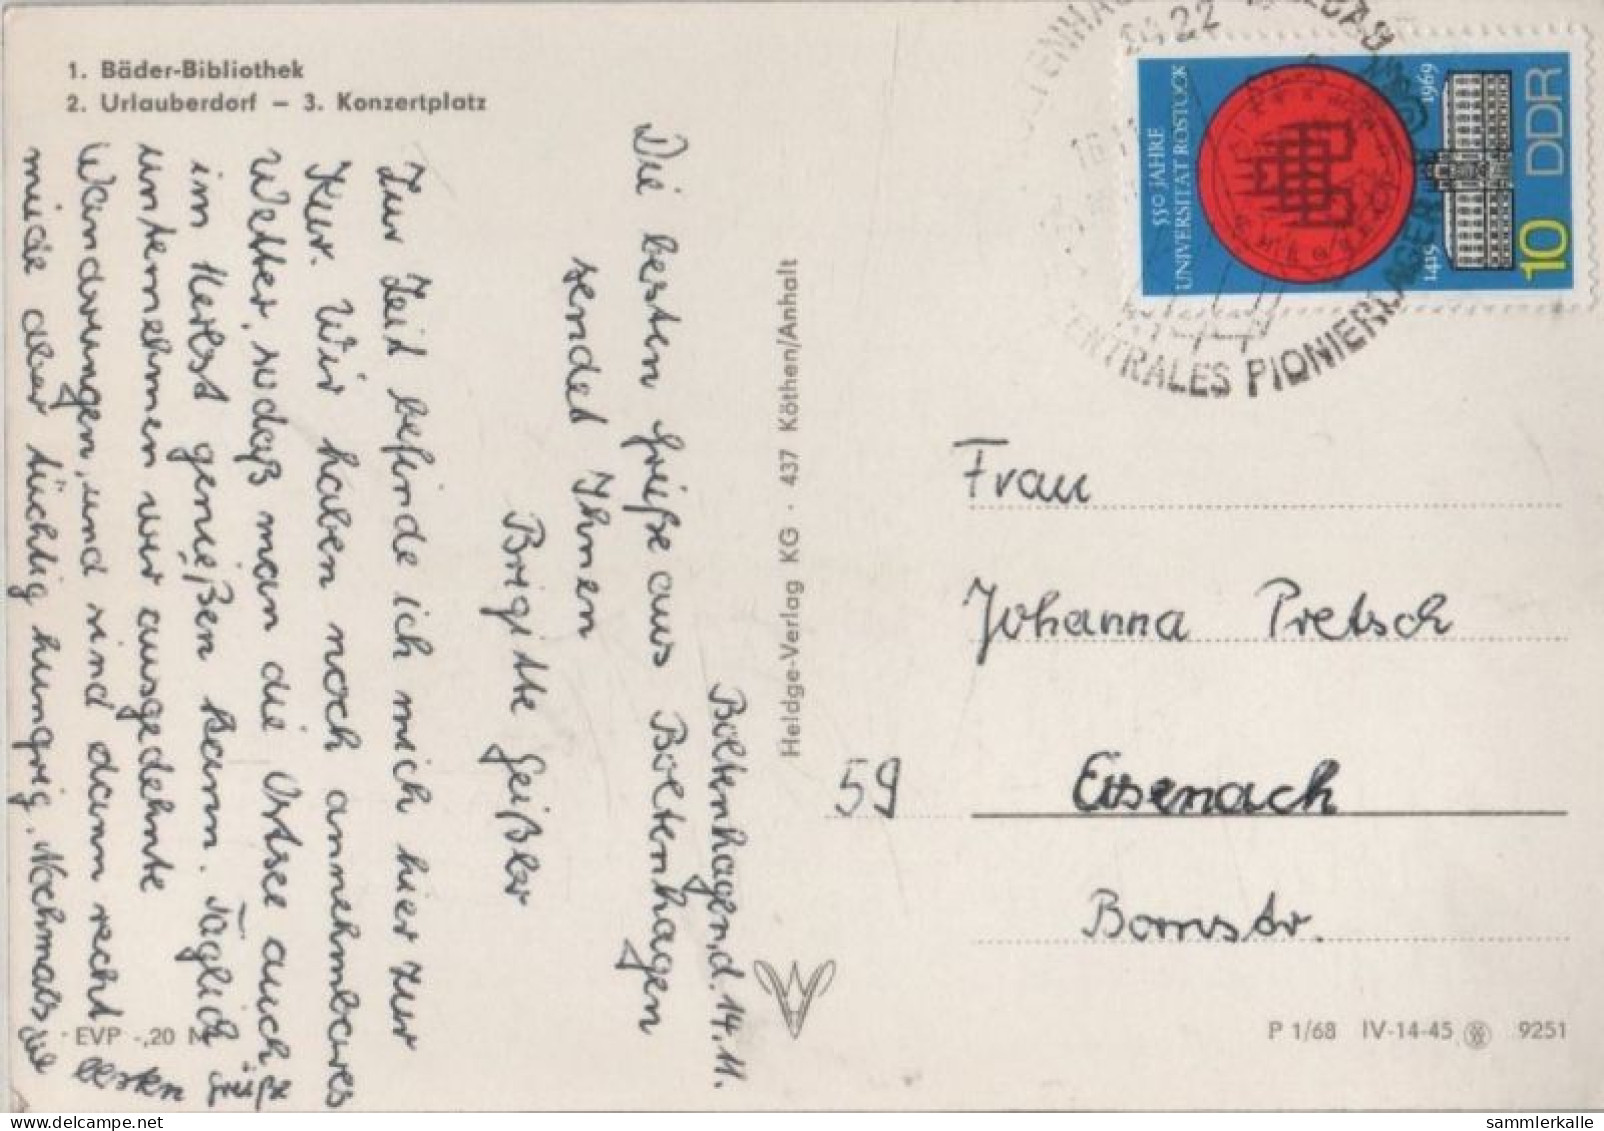 1. Bäder-Bibliothek
2. Urlauberdorf – 3. Konzertplatz
Boltenhagen, d. 14.11.
Die besten Grüße aus Boltenhagen
sendet Ihnen
Brigitte Geißler
Zur Zeit befinde ich mich hier zur
Kur. Wir haben noch annehmbares
Wetter, sodaß man die Ostsee auch
im Herbst genießen kann. Täglich
unternehmen wir ausgedehnte
Wanderungen, und sind dann recht
müde aber tüchtig hungrig. Nochmals die
besten
Grüße
EVP -,20 M
Heldge-Verlag KG · 437 Köthen/Anhalt
2422
ZENTRALES PIONIERLAGER
550 JAHRE
UNIVERSITÄT ROSTOCK
1419 1969
10 DDR
Frau
Johanna Pretsch
59 Eisenach
Bornstr.
P 1/68 IV-14-45 9251
sammlerkalle